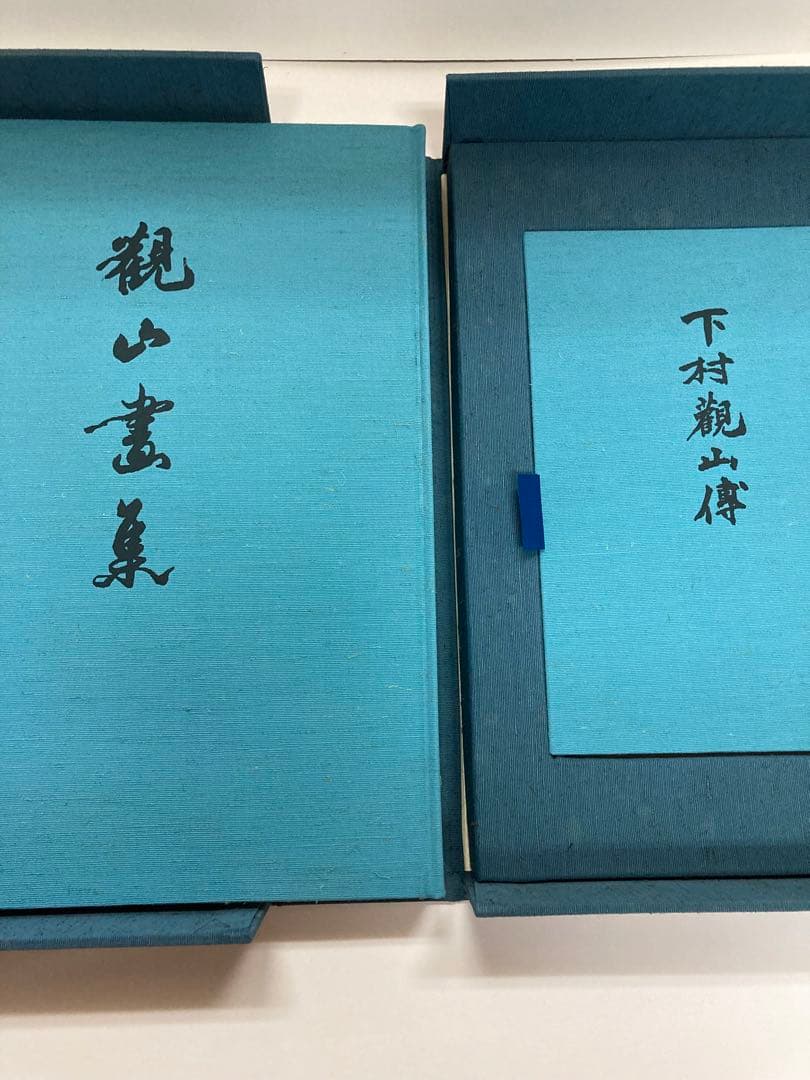 觀山畫集
下村觀山傳